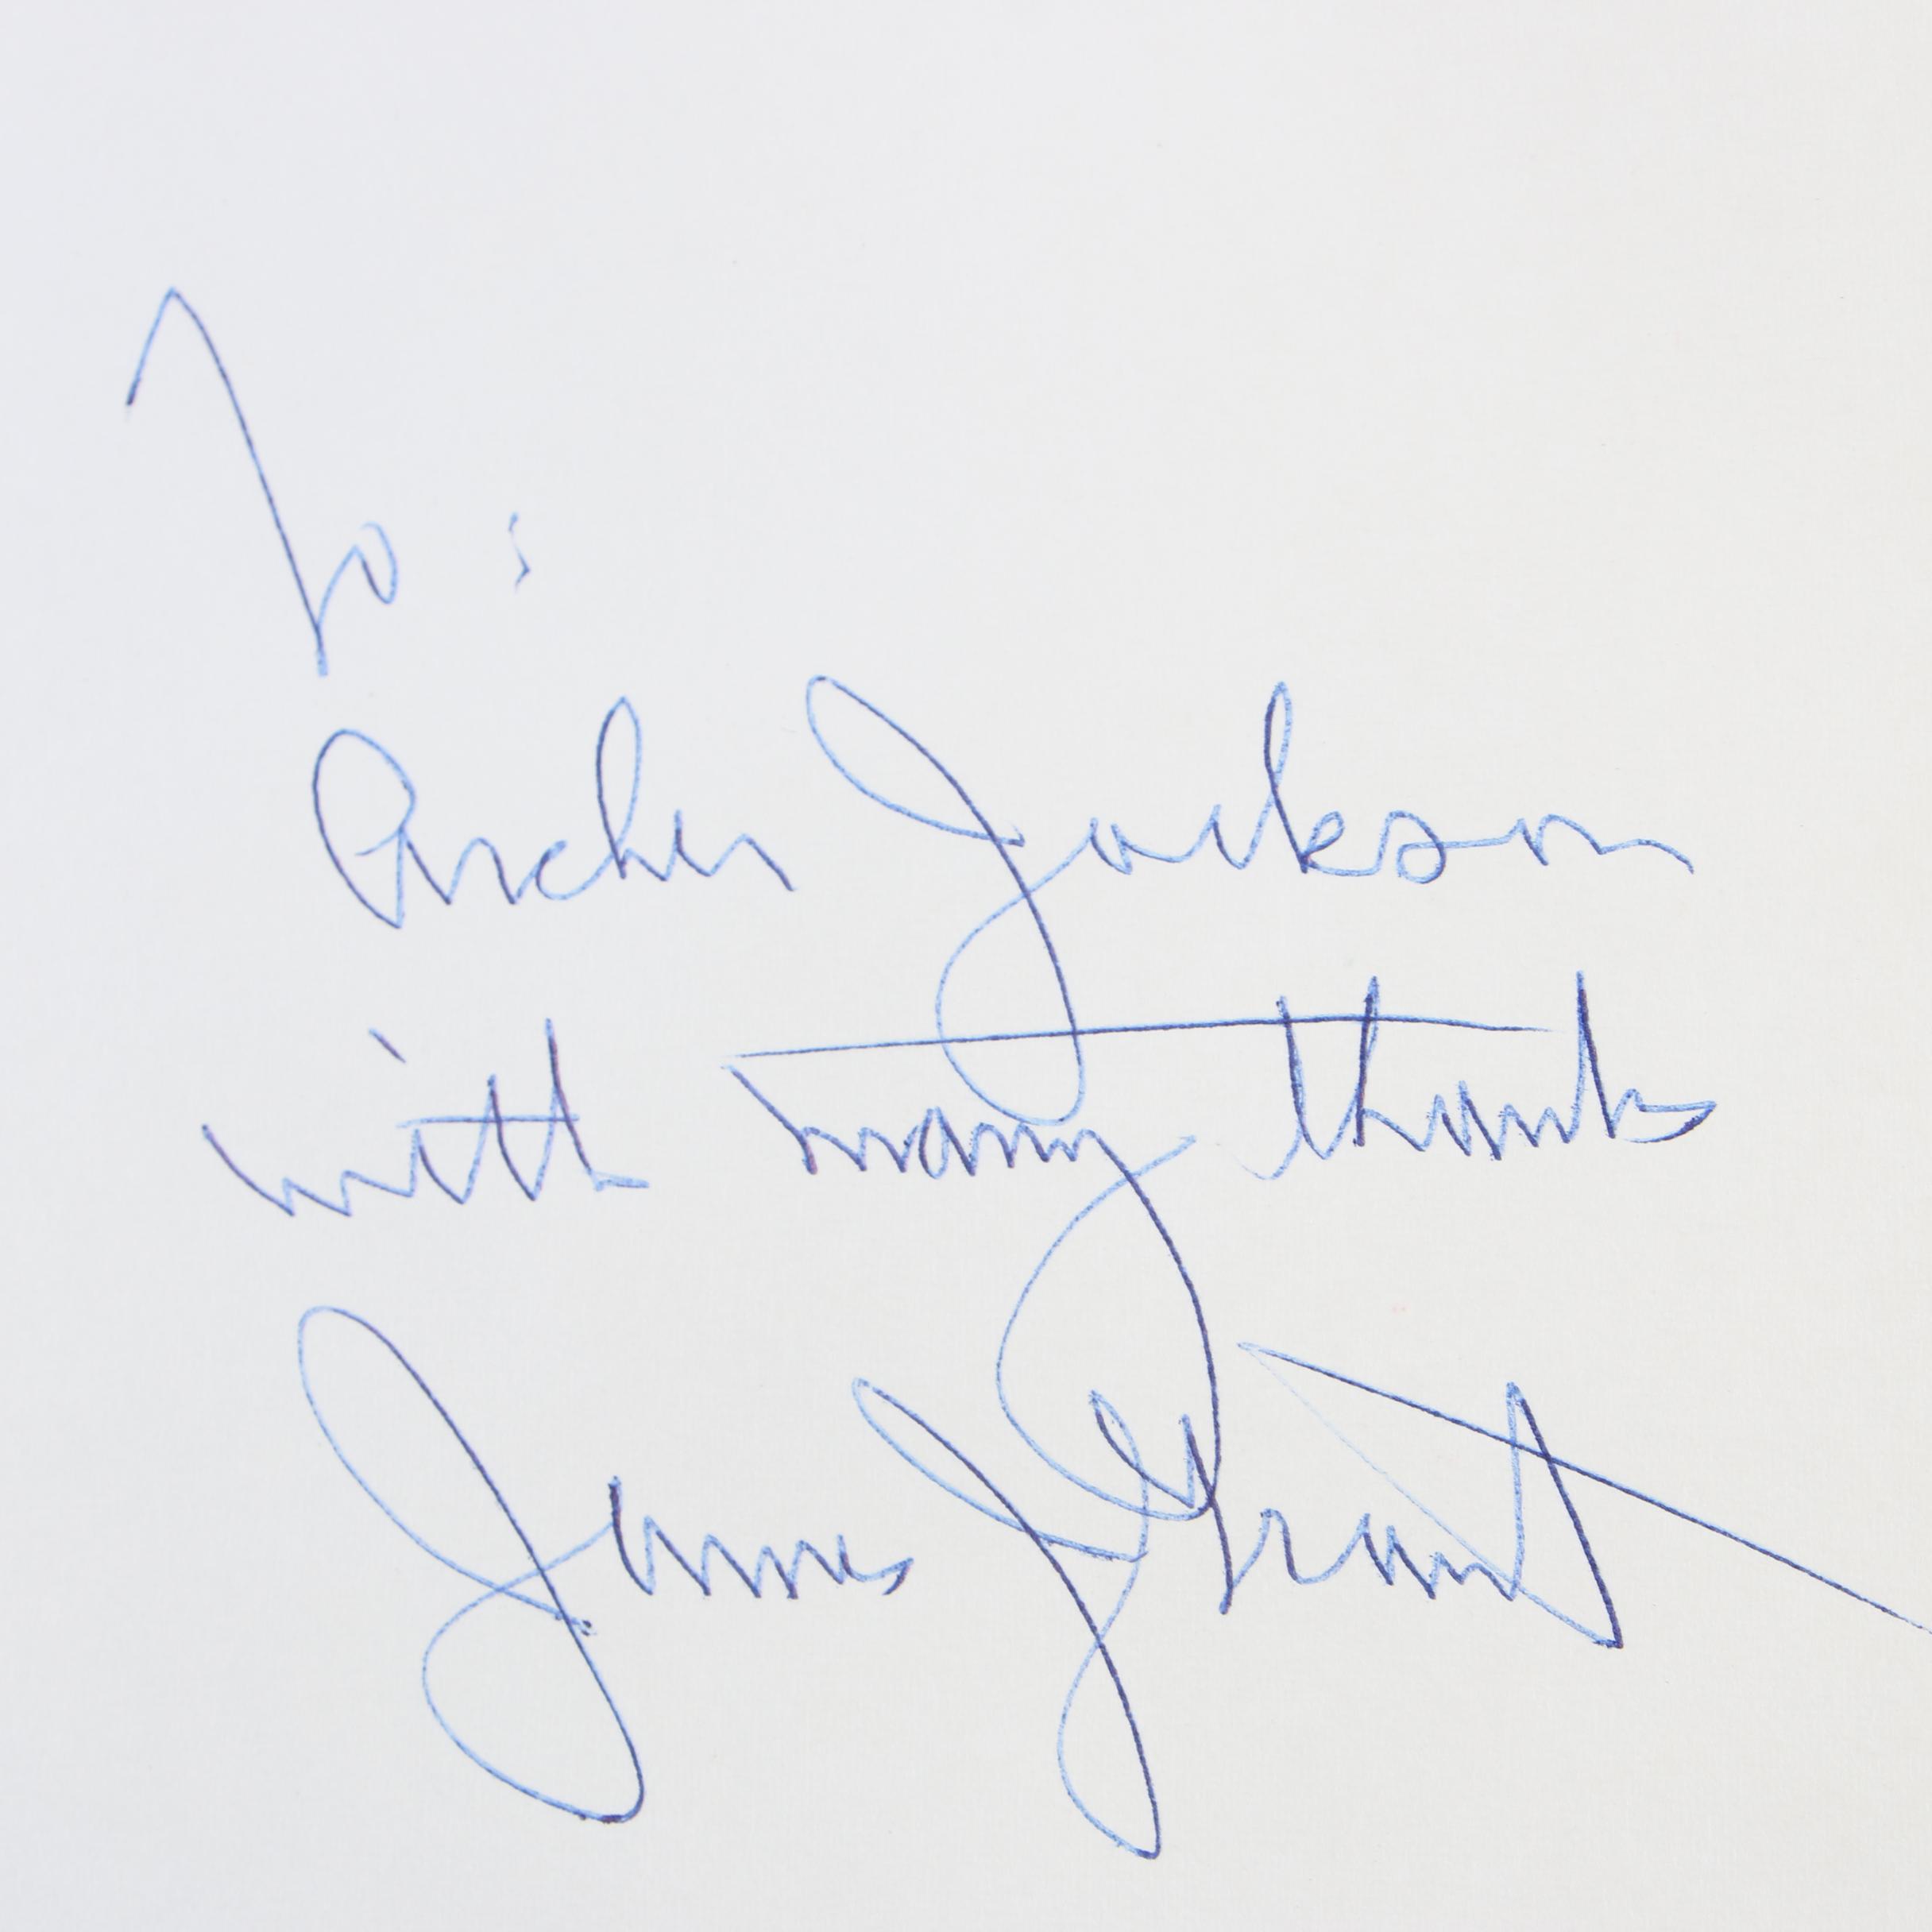 To:
Archer Jackson
with many thanks
James J Grant